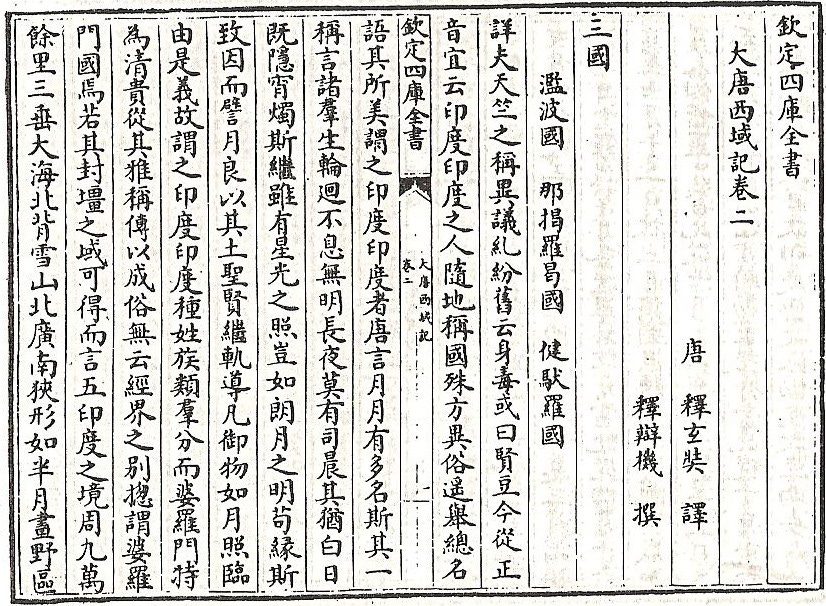 欽定四庫全書
大唐西域記卷二
唐 釋玄奘 譯
釋辯機 撰
三國
濫波國 那揭羅曷國 健馱羅國
詳夫天竺之稱異議糺紛舊云身毒或曰賢豆今從正
音宜云印度印度之人隨地稱國殊方異俗遥舉總名
欽定四庫全書
大唐西域記
卷二
一
語其所美謂之印度印度者唐言月月有多名斯其一
稱言諸羣生輪迴不息無明長夜莫有司晨其猶白日
既隱宵燭斯繼雖有星光之照豈如朗月之明苟緣斯
致因而譬月良以其土聖賢繼軌導凡御物如月照臨
由是義故謂之印度印度種姓族類羣分而婆羅門特
為清貴從其雅稱傳以成俗無云經界之別揔謂婆羅
門國焉若其封壃之域可得而言五印度之境周九萬
餘里三垂大海北背雪山北廣南狹形如半月畫野區